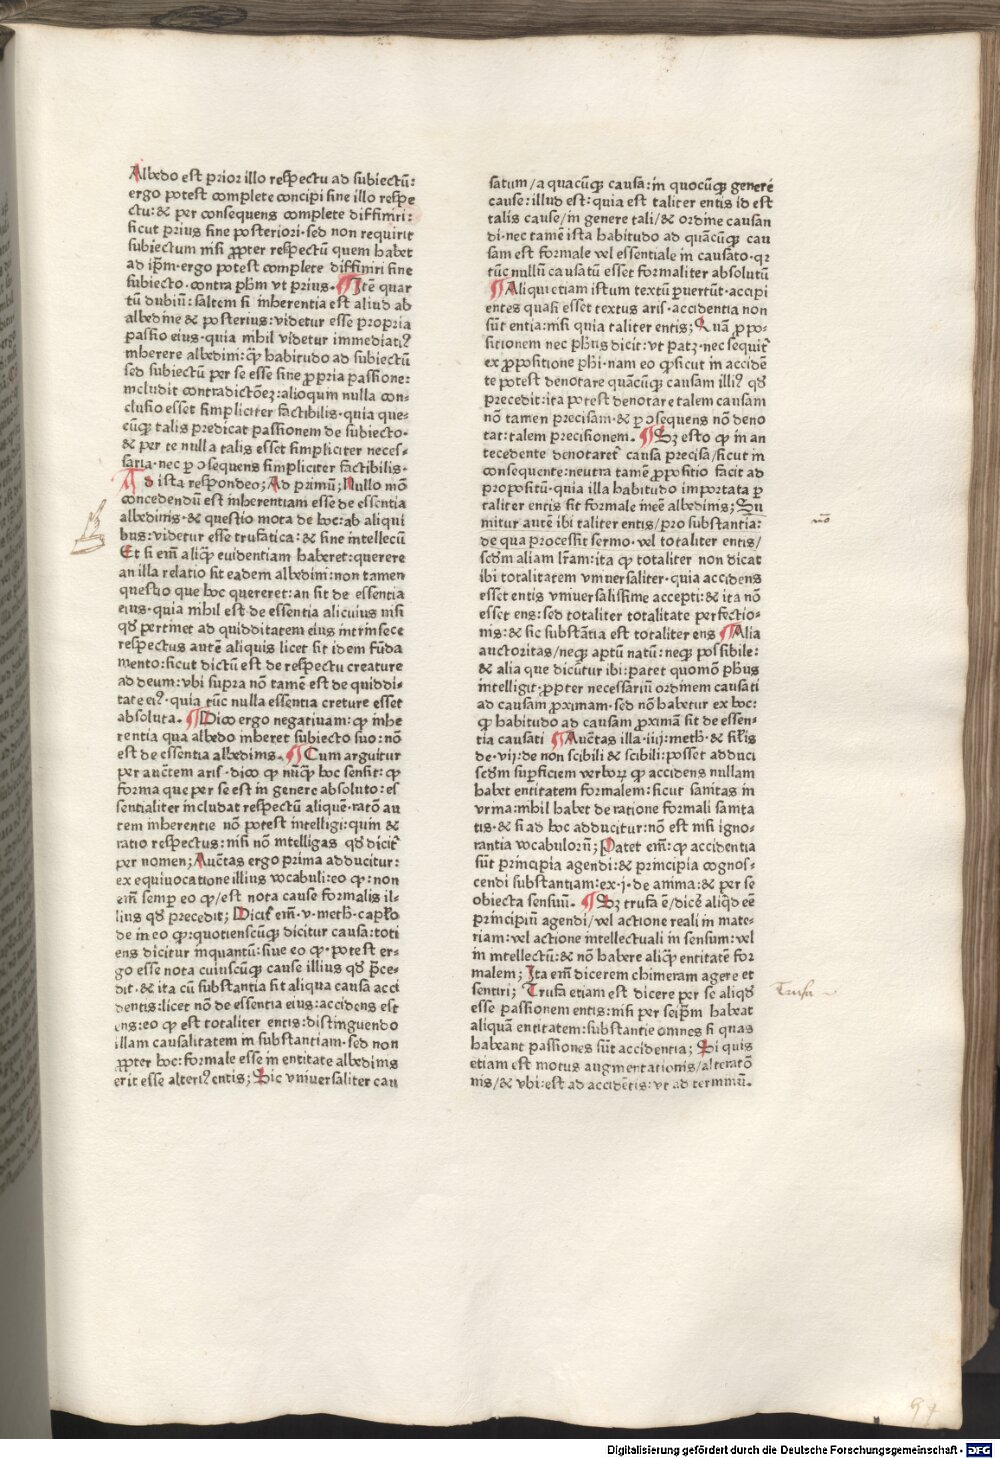 Albedo est prior illo respectu ad subiectū:
ergo potest complete concipi sine illo respe
ctu: & per consequens complete diffiniri:
sicut prius sine posteriori· sed non requirit
subiectum nisi ꝓpter respectū quem habet
ad ip̄m· ergo potest complete diffiniri sine
subiecto· contra ph̄m vt prius· ¶ Itē quar
tū dubiū: saltem si inherentia est aliud ab
albedine & posterius: videtur esse propria
passio eius· quia nihil videtur immediatiꝰ
inherere albedini: ꝙ̄ habitudo ad subiectū
sed subiectū per se esse sine ꝓpria passione:
includit contradictōeꝫ: alioqum nulla con-
clusio esset simpliciter factibilis· quia que-
cūqꝫ talis predicat passionem de subiecto·
& per te nulla talis esset simpliciter neces-
saria· nec ꝑ ɔsequens simpliciter factibilis·
Ad ista respondeo; Ad primū; Nullo mō
concedendū est inherentiam esse de essentia
albedinis· & questio mota de hoc: ab aliqui
bus: videtur esse trufatica: & sine intellecū
Et si em̄ aliqꝙ euidentiam haberet: querere
an illa relatio sit eadem albedini: non tamen
questio que hoc quereret: an sit de essentia
eius· quia nihil est de essentia alicuius nisi
qd̄ pertinet ad quidditatem eius intrinsece
respectus autē aliquis licet sit idem fūda
mento: sicut dictū est de respectu creature
ad deum: vbi supra nō tamē est de quiddi-
tate eiꝰ· quia tūc nulla essentia creture esset
absoluta· ¶ Dico ergo negatiuam: ꝙ inhe
rentia qua albedo inheret subiecto suo: nō
est de essentia albedinis· ¶ Cum arguitur
per auctem aris· dico ꝙ nūqꝙ hoc sensit: ꝙ
forma que per se est in genere absoluto: es
sentialiter includat respectū aliquē· ratō au
tem inherentie nō potest intelligi: quin &
ratio respectus: nisi nō intelligas qd̄ dicit̄
per nomen; Auctas ergo prima adducitur:
ex equiuocatione illius vocabuli: eo ꝙ: non
em̄ semꝑ eo ꝙ/ est nota cause formalis il-
lius qd̄ precedit; Dicit̄ em̄· v· meth· capl̄o
de in eo ꝙ: quotienscūqꝫ dicitur causa: toti
ens dicitur inquantū: siue eo ꝙ· potest er-
go esse nota cuiuscūqꝫ cause illius qd̄ p̄ce-
dit· & ita cū substantia sit aliqua causa acci
dentis: licet nō de essentia eius: accidens est
ens: eo ꝙ est totaliter entis: distinguendo
illam causalitatem in substantiam· sed non
ꝓpter hoc: formale esse in entitate albedinis
erit esse alteriꝰ entis; Sic vniuersaliter cau
satum/ a quacūqꝫ causa: in quocūqꝫ genere
cause: illud est: quia est taliter entis id est
talis cause/ in genere tali/ & ordine causan
di· nec tamē ista habitudo ad quācūqꝫ cau
sam est formale vel essentiale in causato· qꝛ
tūc nullū causatū esset formaliter absolutū
¶ Aliqui etiam istum textū ꝑuertūt· accipi
entes quasi esset textus aris· accidentia non
sūt entia: nisi quia taliter entis; Quā ꝓpo-
sitionem nec ph̄us dicit: vt patꝫ· nec sequit̄
ex ꝓpositione ph̄i· nam eo ꝙ sicut in acciden
te potest denotare quācūqꝫ causam illiꝰ qd̄
precedit: ita potest denotare talem causam
nō tamen precisam· & ꝑ ɔsequens nō deno
tat: talem precisionem· ¶ Sꝫ esto ꝙ in an
tecedente denotaret̄ causa precisa/ sicut in
consequente: neutra tamē ꝓpositio facit ad
propositū· quia illa habitudo importata ꝑ
taliter entis sit formale ineē albedinis; Su
mitur autē ibi taliter entis/ pro substantia:
de qua processit sermo· vel totaliter entis/
scd̄m aliam lr̄am: ita ꝙ totaliter non dicat
ibi totalitatem vniuersaliter· quia accidens
esset entis vniuersalissime accepti: & ita nō
esset ens: sed totaliter totalitate perfectio-
nis: & sic substātia est totaliter ens ¶ Alia
auctoritas/ neqꝫ aptū natū: neqꝫ possibile:
& alia que dicūtur ibi: patet quomō ph̄us
intelligit· ꝓpter necessariū ordinem causati
ad causam ꝓximam· sed nō habetur ex hoc:
ꝙ habitudo ad causam ꝓximā sit de essen-
tia causati ¶ Auctas illa· iiij· meth· & sil̄is
de· vij: de non scibili & scibili: posset adduci
scd̄m suꝑficiem verborꝝ ꝙ accidens nullam
habet entitatem formalem: sicut sanitas in
vrina: nihil habet de ratione formali sanita
tis· & si ad hoc adducitur: nō est nisi igno-
rantia vocabulorū; Patet em̄: ꝙ accidentia
sūt principia agendi: & principia cognos-
cendi substantiam: ex· j· de anima: & per se
obiecta sensuū· ¶ Sꝫ trufa ē/ dicē aliqd̄ eē
principiū agendi/ vel actione reali in mate-
riam: vel actione intellectuali in sensum: vel
in intellectū: & nō habere aliqꝙ entitatē for
malem; Ita em̄ dicerem chimeram agere et
sentiri; Trufa etiam est dicere per se aliqd̄
esse passionem entis: nisi per seip̄m habeat
aliquā entitatem: substantie omnes si quas
habeant passiones sūt accidentia; Si quis
etiam est motus augmentationis/ alteratō
nis/ & vbi: est ad accidētis: vt ad terminū·
nō
Trufa
97
Digitalisierung gefördert durch die Deutsche Forschungsgemeinschaft - DFG